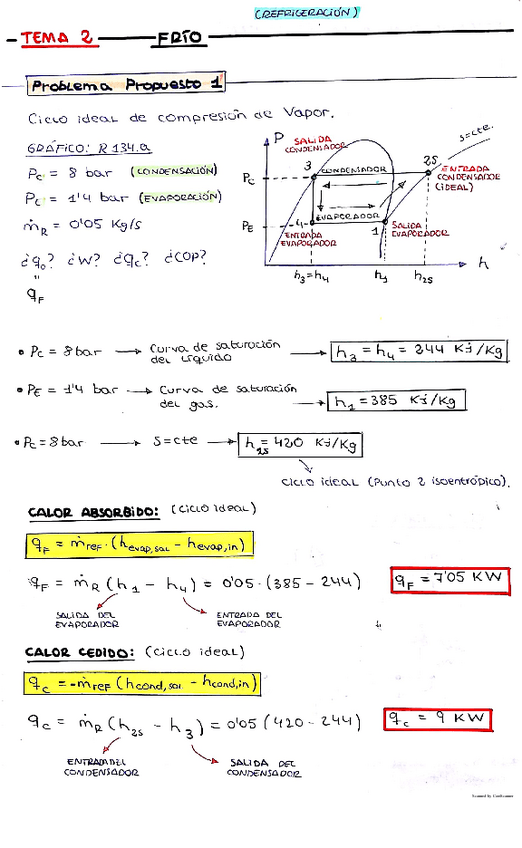 (REFRIGERACIÓN)
- TEMA 2 FRÍO
Problema Propuesto 1
Ciclo ideal de compresión de Vapor.
GRÁFICO: R 134.a
Pc = 8 bar (CONDENSACIÓN)
Pc = 1'4 bar (EVAPORACIÓN)
ṁR = 0'05 Kg/s
¿q₀? ¿W? ¿qc? ¿COP?
"
qF
P
SALIDA
CONDENSADOR
S=cte.
3
CONDENSADOR
2S
Pc
ENTRADA
CONDENSADOR
(IDEAL)
PE
4
EVAPORADOR
1
ENTRADA
EVAPORADOR
SALIDA
EVAPORADOR
h₃=h₄
h₁
h2s
h
• Pc = 8 bar → Curva de saturación del líquido → h₃ = h₄ = 244 KJ/Kg
• PE = 1'4 bar → Curva de saturación del gas. → h₁ = 385 KJ/Kg
• Pc = 8 bar → S=cte → h2s = 420 KJ/Kg
Ciclo ideal (Punto 2 isoentrópico).
CALOR ABSORBIDO: (Ciclo Ideal)
qF = ṁref · (hevap,sal - hevap,in)
qF = ṁR (h₁ - h₄) = 0'05 · (385 - 244) qF = 7'05 KW
SALIDA DEL
EVAPORADOR
ENTRADA DEL
EVAPORADOR
CALOR CEDIDO: (Ciclo ideal)
qc = -ṁref (hcond,sal - hcond,in)
qc = ṁR (h2s - h₃) = 0'05 (420 - 244) qc = 9 KW
ENTRADA DEL
CONDENSADOR
SALIDA DEL
CONDENSADOR
Scanned by CamScanner